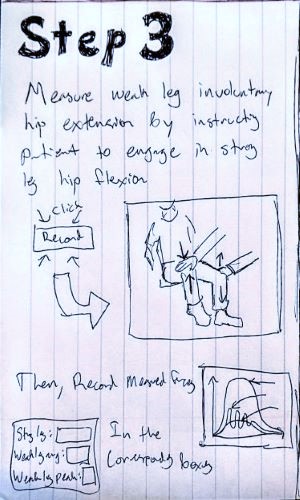 Step 3
Measure weak leg involuntary
hip extension by instructing
patient to engage in strong
leg hip flexion
Click
Record
Then, Record Measured
Weak leg avg:
Weak leg peak:
In the
boxes